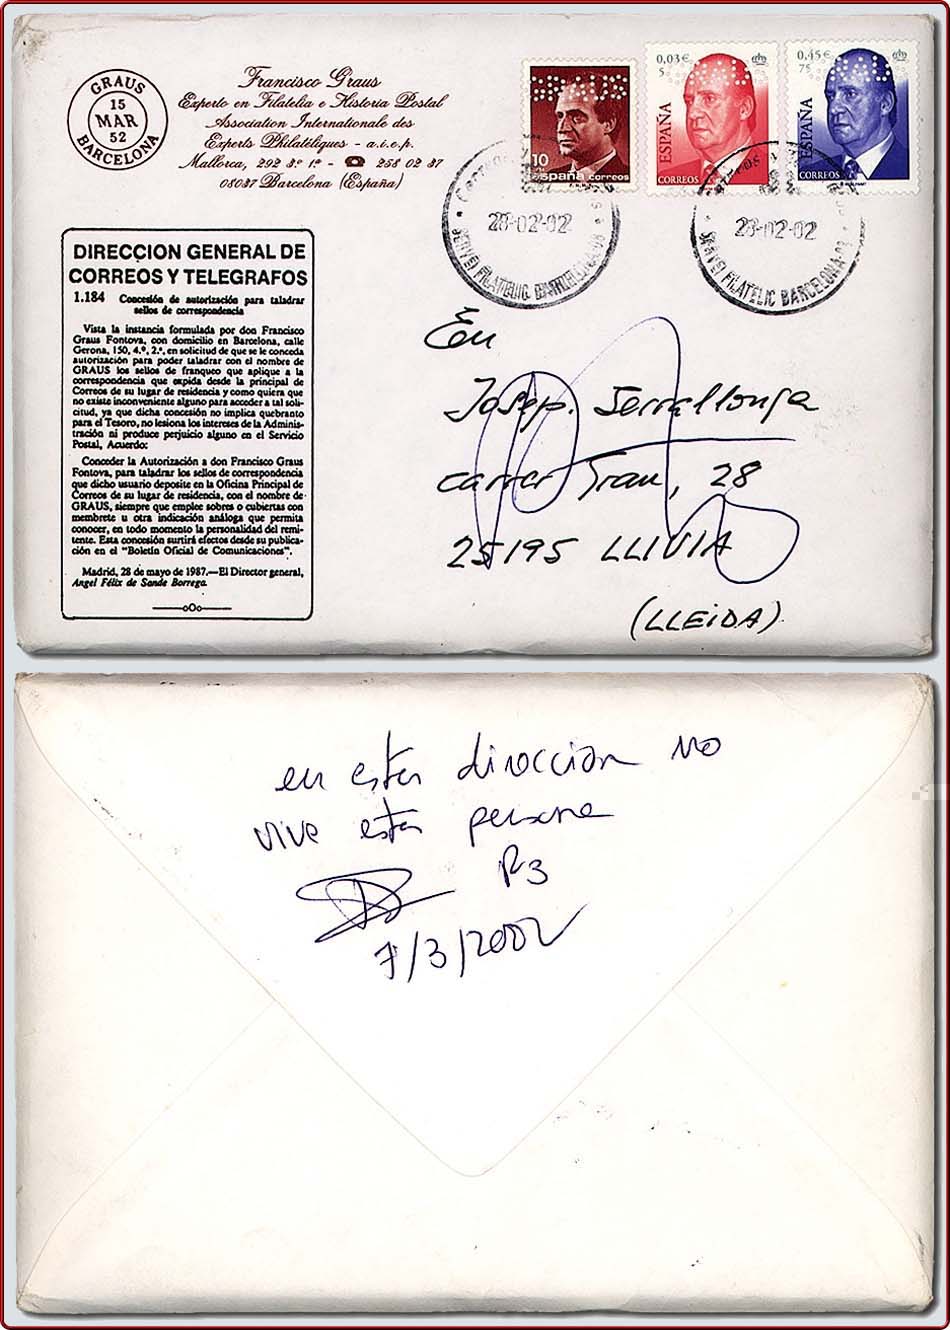 GRAUS
15
MAR
52
BARCELONA
Francisco Graus
Experto en Filatelia e Historia Postal
Association Internationale des
Experts Philatéliques - a.i.e.p.
Mallorca, 292 3º 1ª - ☎ 258 02 37
08037 Barcelona (España)
10
España correos
0,03€
5
ESPAÑA
CORREOS
0,45€
75
ESPAÑA
CORREOS
28-02-02
SERVEI FILATELIC BARCELONA
28-02-02
SERVEI FILATELIC BARCELONA
DIRECCION GENERAL DE
CORREOS Y TELEGRAFOS
1.184 Concesión de autorización para taladrar
sellos de correspondencia
Vista la instancia formulada por don Francisco
Graus Fontova, con domicilio en Barcelona, calle
Gerona, 150, 4.º, 2.ª, en solicitud de que se le conceda
autorización para poder taladrar con el nombre de
GRAUS los sellos de franqueo que aplique a la
correspondencia que expida desde la principal de
Correos de su lugar de residencia y como quiera que
no existe inconveniente alguno para acceder a tal soli-
citud, ya que dicha concesión no implica quebranto
para el Tesoro, no lesiona los intereses de la Adminis-
tración ni produce perjuicio alguno en el Servicio
Postal, Acuerdo:
Conceder la Autorización a don Francisco Graus
Fontova, para taladrar los sellos de correspondencia
que dicho usuario deposite en la Oficina Principal de
Correos de su lugar de residencia, con el nombre de
GRAUS, siempre que emplee sobres o cubiertas con
membrete u otra indicación análoga que permita
conocer, en todo momento la personalidad del remi-
tente. Esta concesión surtirá efectos desde su publica-
ción en el "Boletín Oficial de Comunicaciones".
Madrid, 28 de mayo de 1987.—El Director general,
Angel Félix de Sande Borrega.
En
Josep. Serrallonga
carrer Grau, 28
25195 LLIVIA
(LLEIDA)
en esta direccion no
vive esta persona
P3
7/3/2002